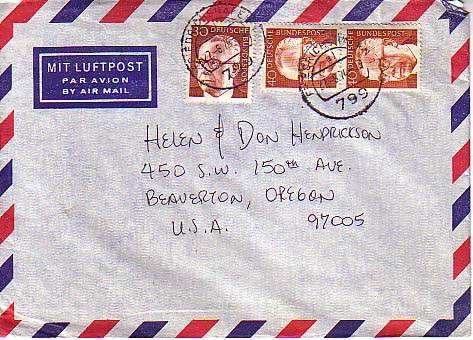 MIT LUFTPOST
PAR AVION
BY AIR MAIL
30 DEUTSCHE BUNDESPOST
40 DEUTSCHE BUNDESPOST
40 DEUTSCHE BUNDESPOST
799
HELEN & DON HENDRICKSON
450 S.W. 150TH AVE.
BEAVERTON, OREGON
U.S.A. 97005